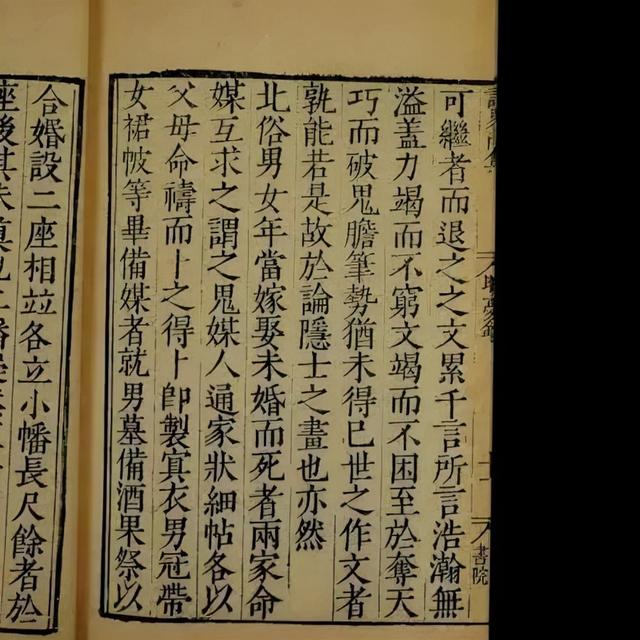 可繼者而退之之文累千言所言浩瀚無
溢蓋力竭而不窮文竭而不困至於奪天
巧而破鬼膽筆勢猶未得已世之作文者
孰能若是故於論隱士之畫也亦然
北俗男女年當嫁娶未婚而死者兩家命
媒互求之謂之鬼媒人通家狀細帖各以
父母命禱而卜之得卜即製冥衣男冠帶
女裙帔等畢備媒者就男墓備酒果祭以
合婚設二座相並各立小幡長尺餘者於
座後其未奠也二幡
書院